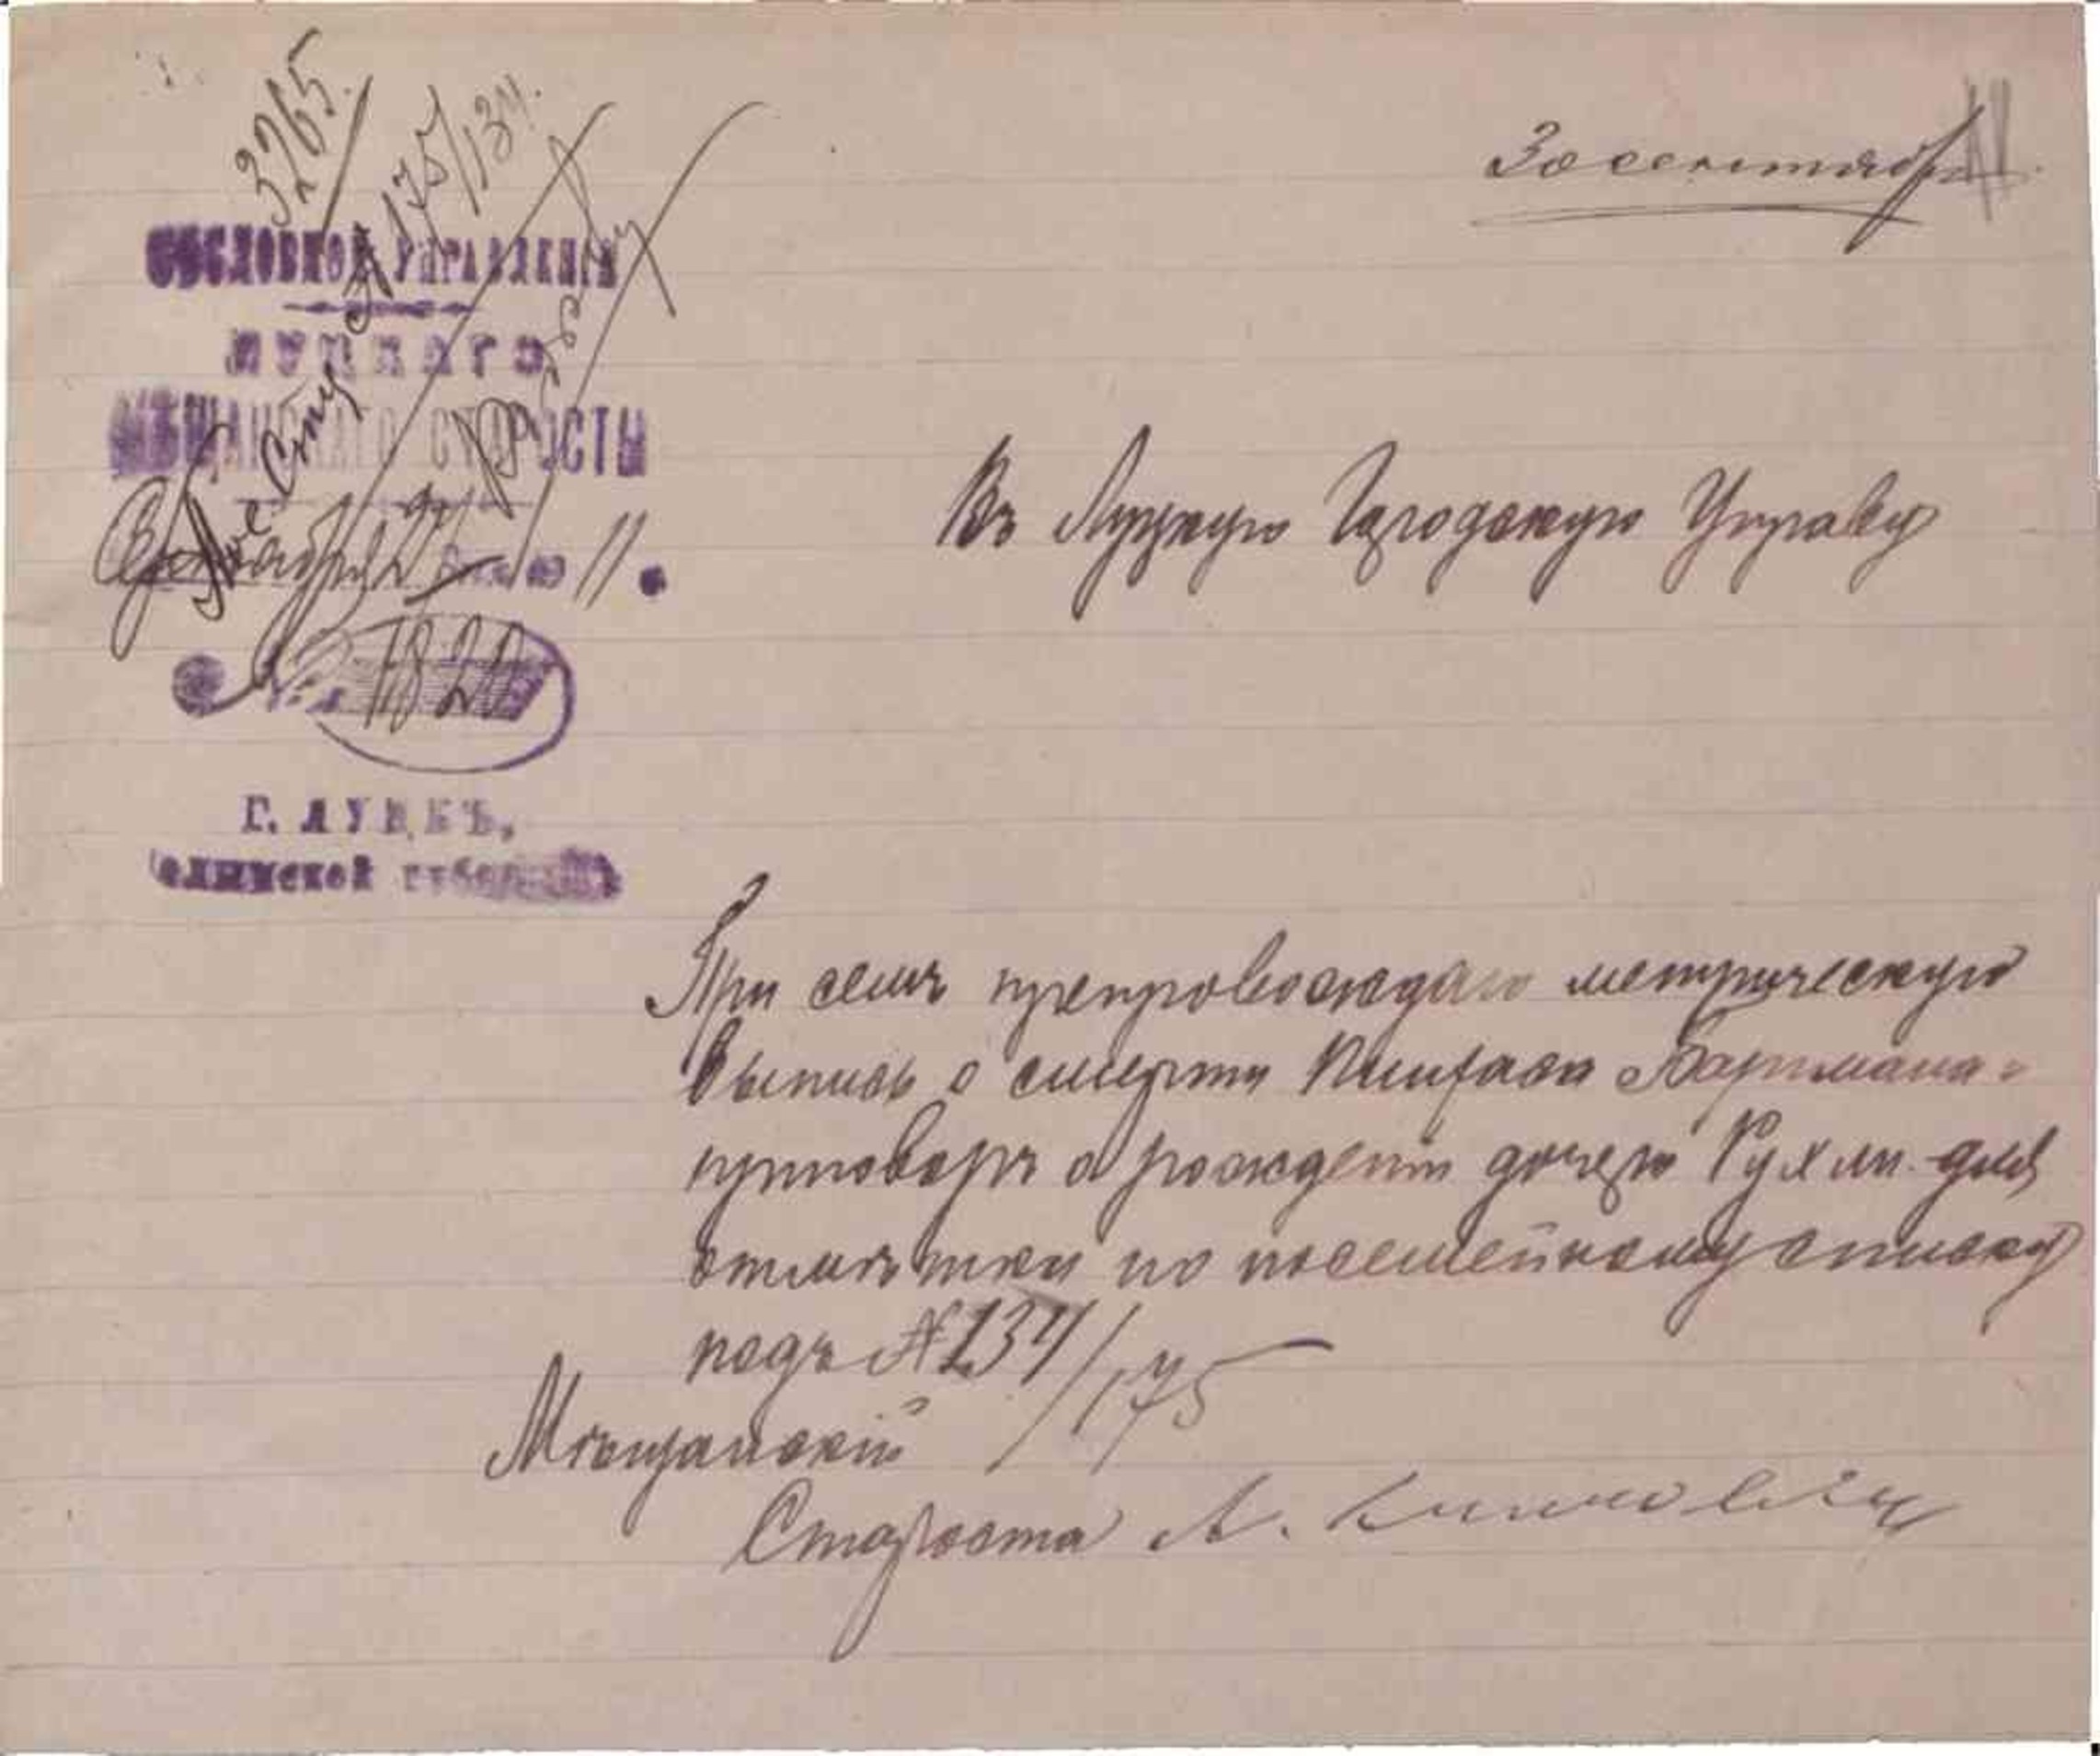 3265.
№ 175/134.
30 сентября 11.
СОСЛОВНОЕ УПРАВЛЕНІЕ
ЛУЦКАГО
МѢЩАНСКАГО СТАРОСТЫ
Сентября 29 11.
№ 1820
Г. ЛУЦКЪ,
Волынской губерніи
Въ Луцкую Городскую Управу
При семъ препровождаю метрическую
выпись о смерти Пинхаса Бартмана
приговоръ о рожденіи дочери Рухли для
отмѣтки по посемейному списку
подъ № 134/175
Мѣщанскій
Староста